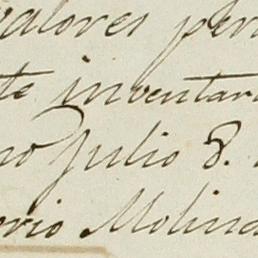 valores per
te inventar
no Julio 8.
orio Molina